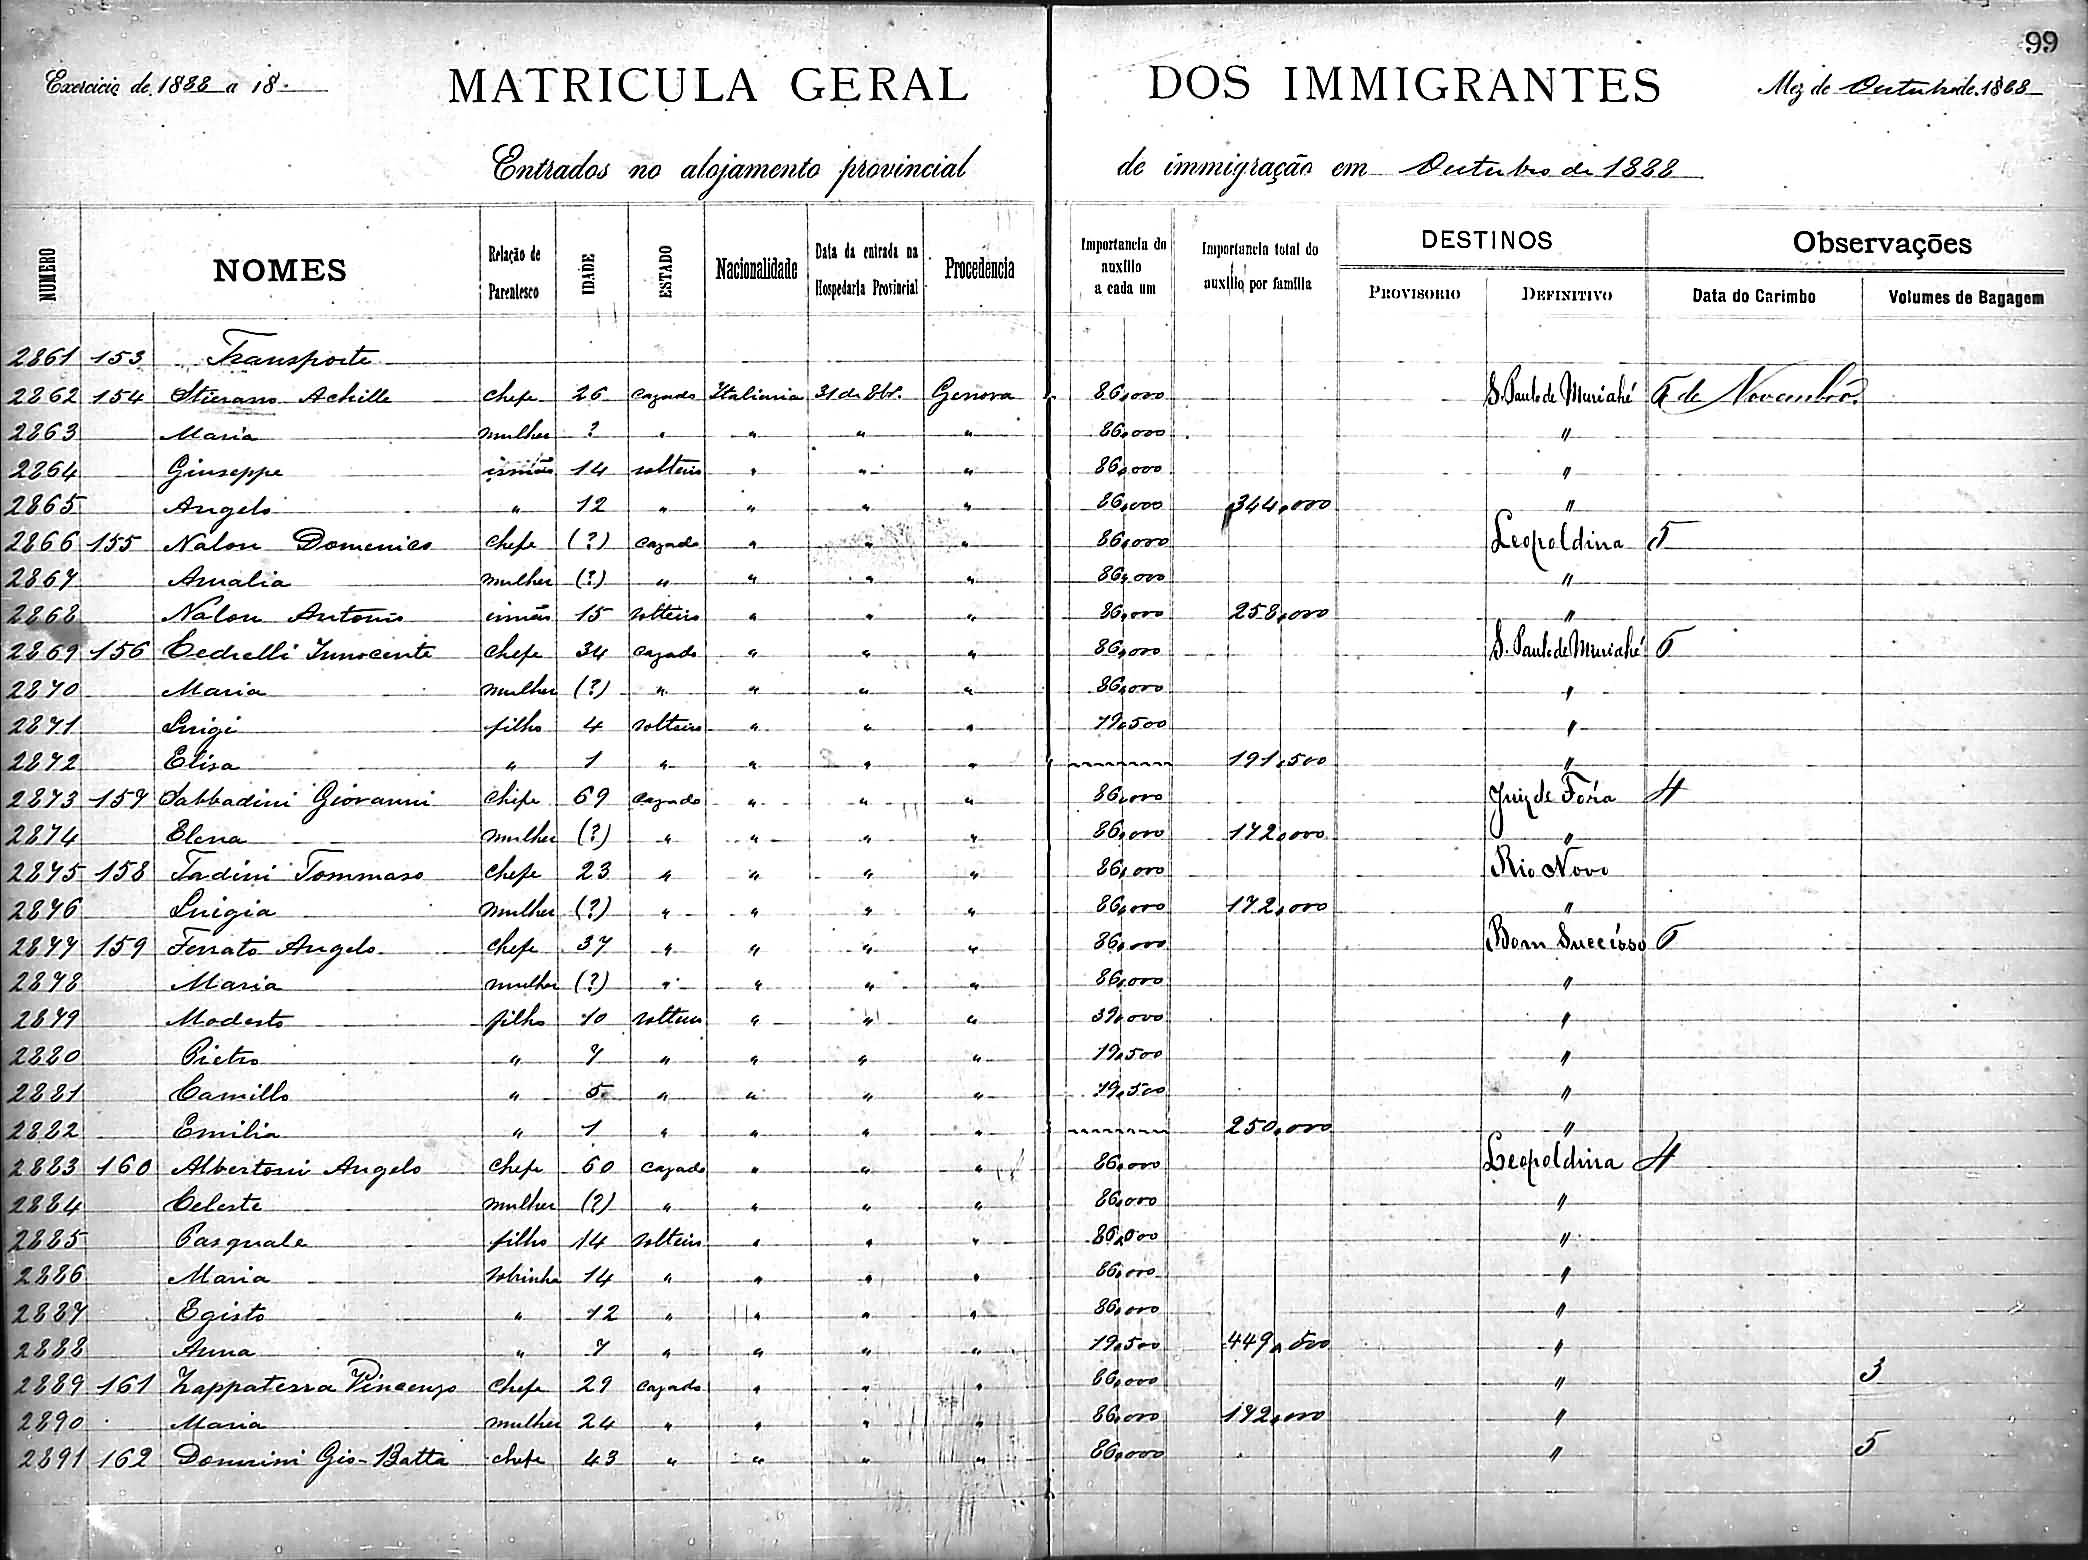 99
Exercicio de 1888 a 18
MATRICULA GERAL DOS IMMIGRANTES
Mez de Outubro de 1888
Entrados no alojamento provincial de immigração em Outubro de 1888
NUMERO NOMES Relação de Parentesco IDADE ESTADO Nacionalidade Data da entrada na Hospedaria Provincial Procedencia Importancia do auxilio a cada um Importancia total do auxilio por familia DESTINOS PROVISORIO DEFINITIVO Observações Data do Carimbo Volumes de Bagagem
2861 153 Transporte
2862 154 Stierano Achille chefe 26 cazado Italiana 31 de 8br. Genova 86,000 S. Paulo de Muriahé 6 de Novembro
2863 Maria mulher ? " " " " 86,000 "
2864 Giuseppe irmão 14 solteiro " " " 86,000 "
2865 Angelo " 12 " " " " 86,000 344,000 "
2866 155 Nalon Domenico chefe (?) cazado " " " 86,000 Leopoldina 5
2867 Amalia mulher (?) " " " " 86,000 "
2868 Nalon Antonio irmão 15 solteiro " " " 86,000 258,000 "
2869 156 Cedrelli Innocente chefe 34 cazado " " " 86,000 S. Paulo de Muriahé 6
2870 Maria mulher (?) " " " " 86,000 "
2871 Luigi filho 4 solteiro " " " 19,500 "
2872 Elisa " 1 " " " " 191,500 "
2873 157 Sabbadini Giovanni chefe 69 cazado " " " 86,000 Juiz de Fóra 4
2874 Elena mulher (?) " " " " 86,000 172,000 "
2875 158 Tadini Tommaso chefe 23 " " " " 86,000 Rio Novo
2876 Luigia mulher (?) " " " " 86,000 172,000 "
2877 159 Ferrato Angelo chefe 37 " " " " 86,000 Bom Successo 6
2878 Maria mulher (?) " " " " 86,000 "
2879 Modesto filho 10 solteiro " " " 39,000 "
2880 Pietro " 7 " " " " 19,500 "
2881 Camillo " 5 " " " " 19,500 "
2882 Emilia " 1 " " " " 250,000 "
2883 160 Albertoni Angelo chefe 60 cazado " " " 86,000 Leopoldina 4
2884 Celeste mulher (?) " " " " 86,000 "
2885 Pasquale filho 14 solteiro " " " 86,000 "
2886 Maria sobrinha 14 " " " " 86,000 "
2887 Egisto " 12 " " " " 86,000 "
2888 Anna " 7 " " " " 19,500 449,500 "
2889 161 Zappaterra Vincenzo chefe 29 cazado " " " 86,000 " 3
2890 Maria mulher 24 " " " " 86,000 172,000 "
2891 162 Donnini Gio-Batta chefe 43 " " " " 86,000 " 5